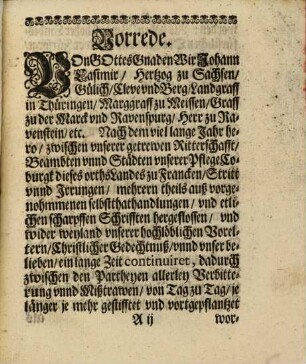 Vorrede.
VOn GOttes Gnaden Wir Johann
Casimir / Hertzog zu Sachsen /
Gülich / Cleve vnd Berg / Landgraff
in Thüringen / Marggraff zu Meissen / Graff
zu der Marck vnd Ravenspurg / Herr zu Ra-
venstein / etc. Nach dem viel lange Jahr he-
ro / zwischen vnserer getrewen Ritterschafft /
Beambten vnnd Städten vnserer Pflege Co-
burgk dieses orths Landes zu Francken / Stritt
vnnd Irrungen / mehrern theils auß vorge-
nohmmenen selbstthathandlungen / vnd etli-
chen scharpffen Schrifften hergeflossen / vnd
wider weyland vnserer hochlöblichen Vorel-
tern / Christlicher Gedechtnuß / vnnd vnser be-
lieben / ein lange Zeit continuiret, dadurch
zwischen den Partheyen allerley Verbitte-
rung vnnd Mißtrawen / von Tag zu Tag / je
länger je mehr gestifftet vnd vortgepflantzet
A ij wor-